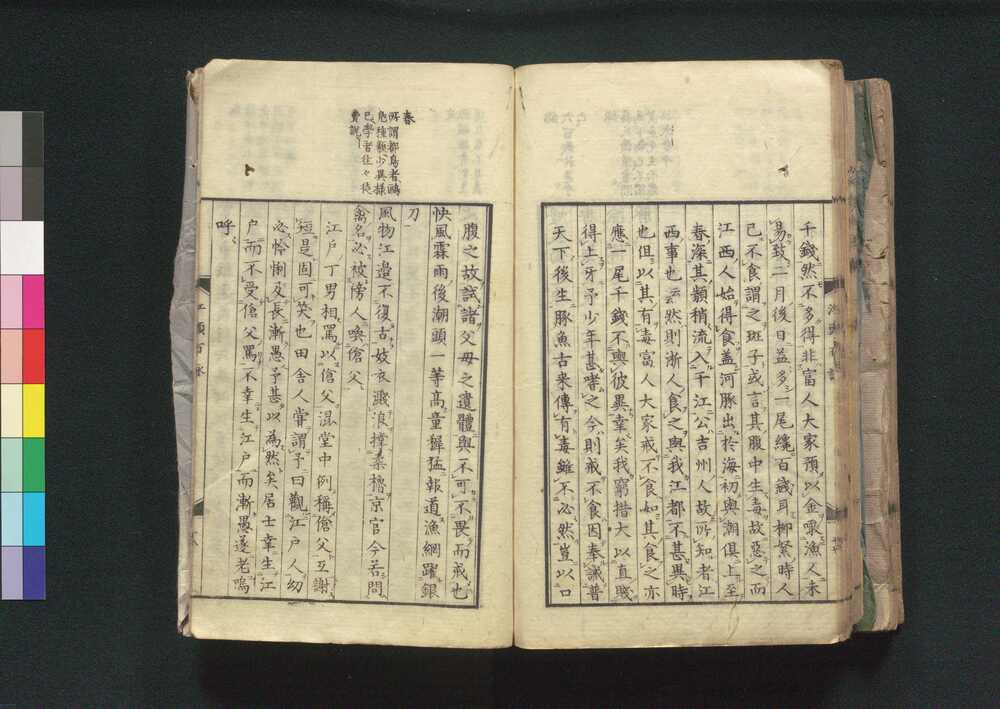 千錢然不多得非富人大家預以金啖漁人未
易致二月後日益多一尾纔百錢耳柳絮時人
已不食謂之斑子或言其腹中生毒故惡之而
江西人始得食蓋河豚出於海初與潮俱上至
春深其類稍流入千江公吉州人故所知者江
西事也云然則浙人食之與我江都不甚異時
也但以其有毒富人大家戒不食如其食之亦
應一尾千錢不輿彼異幸矣我窮措大以直賤
得上牙予少年甚嗜之今則戒不食因奏誡普
天下後生豚魚古來傳有毒雖不必然豈以口
春
所謂都鳥者鷗
鳧種類少異様
已學者往々徒
費説
腹之故試諸父母之遺體與不可不畏而戒也
快風霖雨後潮頭一等高童艀猛報道漁網躍銀
刀
風物江邊不復古妓衣濺浪撑柔櫓京官今若問
禽名必被傍人喚傖父
江戸丁男相罵以傖父混堂中例稱傖父互謝
短是固可笑也田舍人嘗謂予曰觀江戸人幼
必怜悧及長漸愚予甚以為然矣居士幸生江
戸而不受傖父罵不幸生江戸而漸愚遂老嗚
呼